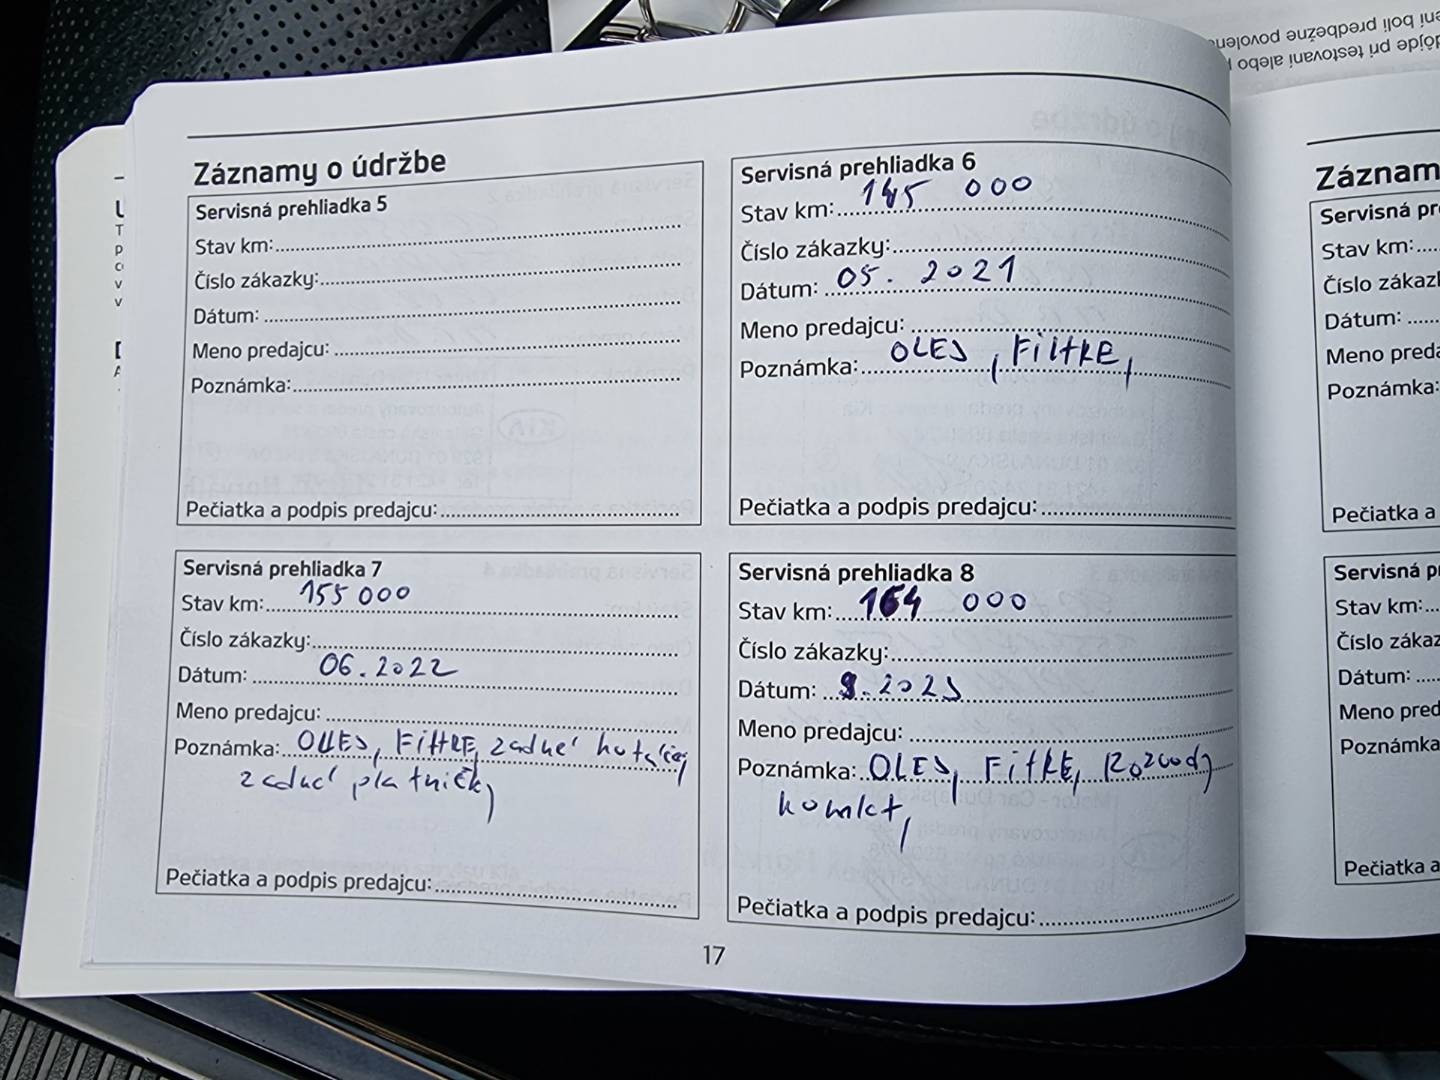 ení boli predbežne povolen
dôjde pri testovaní alebo
Záznamy o údržbe
Servisná prehliadka 5
Stav km:
Číslo zákazky:
Dátum:
Meno predajcu:
Poznámka:
Pečiatka a podpis predajcu:
Servisná prehliadka 6
Stav km: 145 000
Číslo zákazky:
Dátum: 05. 2021
Meno predajcu:
Poznámka: OLEJ, FiltRE,
Pečiatka a podpis predajcu:
Servisná prehliadka 7
Stav km: 155 000
Číslo zákazky:
Dátum: 06. 2022
Meno predajcu:
Poznámka: OLEJ, FiltRE, zadné
zadné platničky
Pečiatka a podpis predajcu:
Servisná prehliadka 8
Stav km: 164 000
Číslo zákazky:
Dátum: 9. 2023
Meno predajcu:
Poznámka: OLEJ, FiltRE, Rozvody
komlet,
Pečiatka a podpis predajcu:
17
Záznam
Servisná pr
Stav km:
Číslo zákaz
Dátum:
Meno preda
Poznámka:
Pečiatka a
Servisná p
Stav km:
Číslo zákaz
Dátum:
Meno pred
Poznámka
Pečiatka a